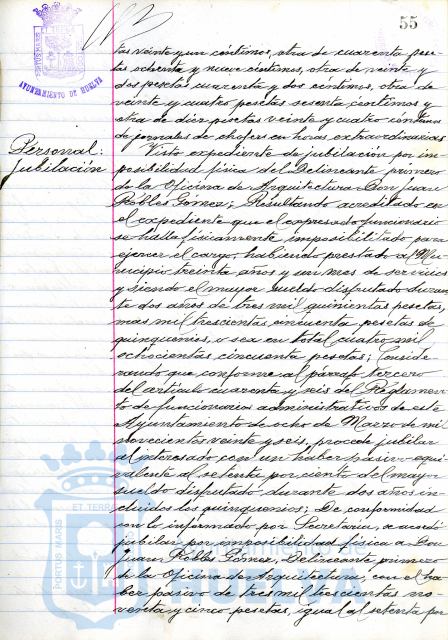 55
PORTUS MARIS ET TERRAE
AYUNTAMIENTO DE HUELVA
tas veinte y un céntimos, otra de cuarenta pese-
tas ochenta y nueve céntimos, otra de veinte y
dos pesetas cuarenta y dos céntimos, otra de
veinte y cuatro pesetas sesenta céntimos y
otra de diez pesetas veinte y cuatro céntimos
de jornales de chofers en horas extraordinarias
Personal:
Jubilación
Visto expediente de jubilación por im-
posibilidad física del Delineante primero
de la Oficina de Arquitectura Don Juan
Robles Gómez; Resultando acreditado en
el expediente que el expresado funcionario
se halla físicamente imposibilitado para
ejercer el cargo, habiendo prestado al Mu-
nicipio treinta años y un mes de servicios
y siendo el mayor sueldo disfrutado duran-
te dos años de tres mil quinientas pesetas,
mas mil trescientas cincuenta pesetas de
quinquenios, o sea en total cuatro mil
ochocientas cincuenta pesetas; Conside-
rando que conforme al párrafo tercero
del artículo cuarenta y seis del Reglamen-
to de funcionarios administrativos de este
Ayuntamiento de ocho de Marzo de mil
novecientos veinte y seis, procede jubilar
al interesado con un haber pasivo equi-
valente al setenta por ciento del mayor
sueldo disfrutado durante dos años in-
cluidos los quinquenios; De conformidad
con lo informado por Secretaría, se acordó
jubilar por imposibilidad física a Don
Juan Robles Gómez, Delineante primero
de la Oficina de Arquitectura, con el ha-
ber pasivo de tres mil trescientas no-
venta y cinco pesetas, igual al setenta por